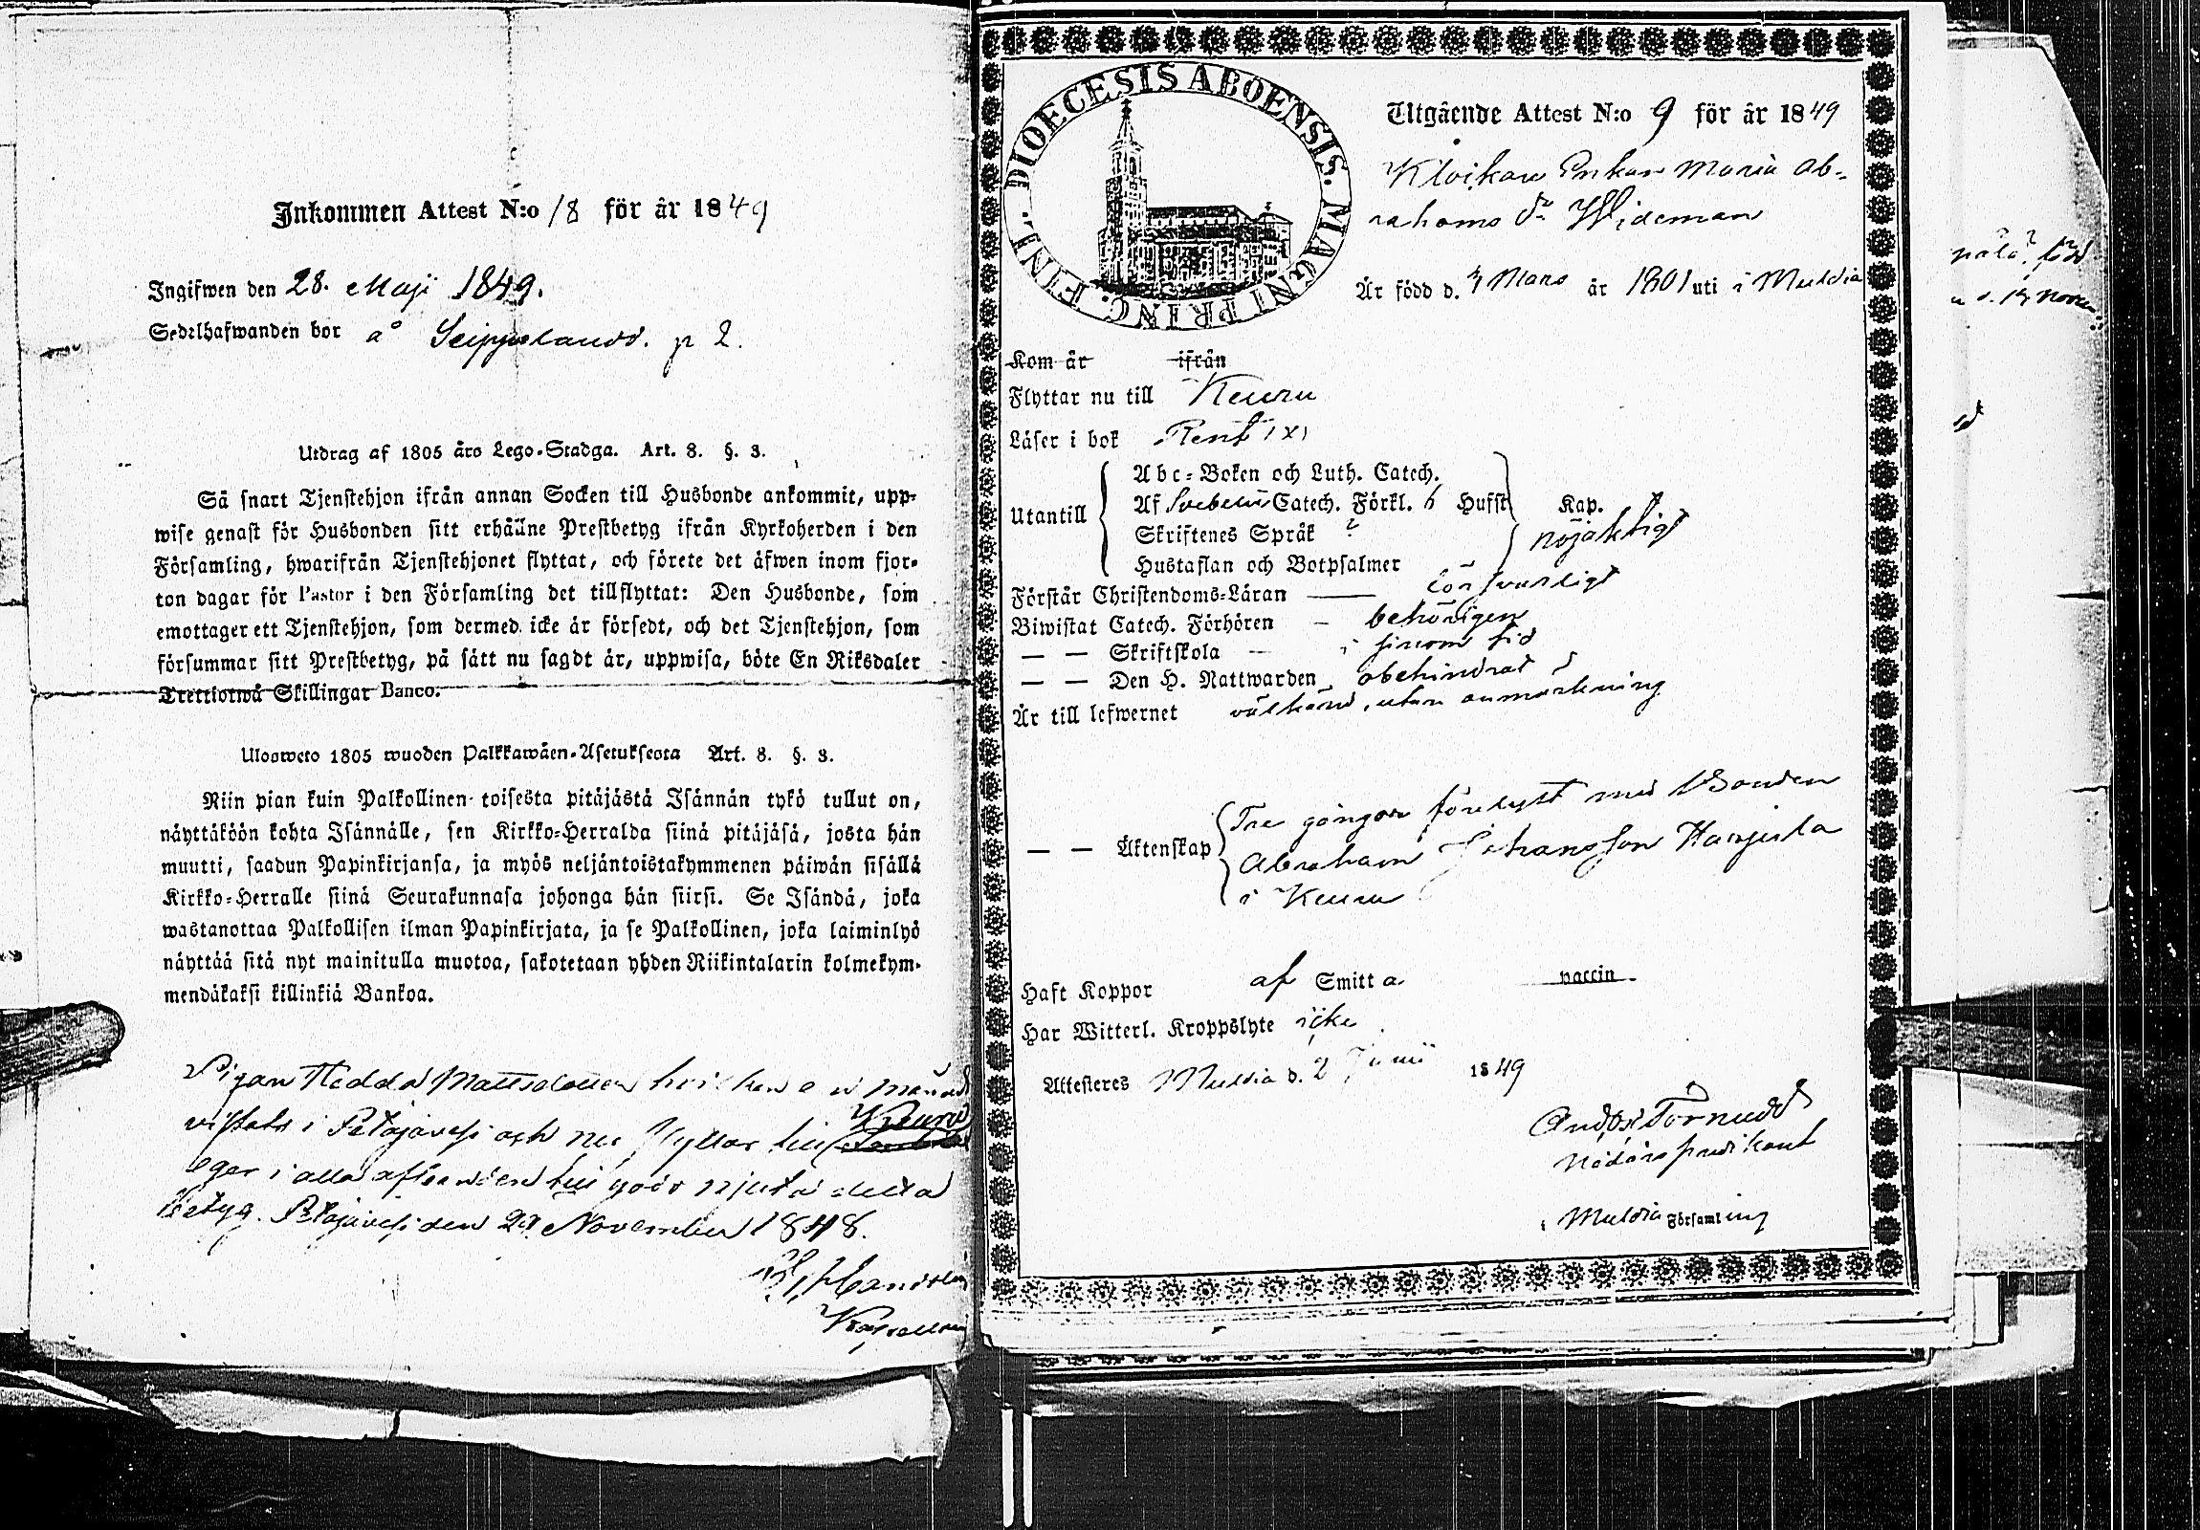 Inkommen Attest N:o 18 för år 1849
Ingifwen den 28. Maji 1849.
Sedelhafwanden bor å p 2.
Utdrag af 1805 års Lego-Stadga. Art. 8. §. 3.
Så snart Tjenstehjon ifrån annan Socken till Husbonde ankommit, upp-
wise genast för Husbonden sitt erhållne Prestbetyg ifrån Kyrkoherden i den
Församling, hwarifrån Tjenstehjonet flyttat, och förete det äfwen inom fjor-
ton dagar för Pastor i den Församling det tillflyttat: Den Husbonde, som
emottager ett Tjenstehjon, som dermed icke är försedt, och det Tjenstehjon, som
försummar sitt Prestbetyg, på sätt nu sagdt är, uppwisa, böte En Riksdaler
Trettiotwå Skillingar Banco.
Ulosweto 1805 wuoden Palkkawäen-Asetuksesta Art. 8. §. 3.
Niin pian kuin Palkollinen toisesta pitäjästä Isännän tykö tullut on,
näyttäköön kohta Isännälle, sen Kirkko-Herralda siinä pitäjäsä, josta hän
muutti, saadun Papinkirjansa, ja myös neljäntoistakymmenen päiwän sisällä
Kirkko-Herralle siinä Seurakunnasa johonga hän siirsi. Se Isändä, joka
wastanottaa Palkollisen ilman Papinkirjata, ja se Palkollinen, joka laiminlyö
näyttää sitä nyt mainitulla muotoa, sakotetaan yhden Riikintalarin kolmekym-
mendäkaksi killinkiä Bankoa.
Pigan Hedda Mattsdotter hvilken en månad
Keuru
vistats i Petäjävesi och nu flyttar till
eger i alla afseenden till godo njuta detta
Betyg. Petäjävesi den November 1848.
Kapellan
DIOECESIS ABOENSIS. MAGNI PRINC. FINL.
Utgående Attest N:o 9 för år 1849
Enkan Maria Ab-
rahams dr Wideman
Är född d. Mars år 1801 uti i Muldia
Kom år ifrån
Flyttar nu till Keuru
Läser i bok Rent (x)
Utantill
Abc-Boken och Luth. Catech.
Af Svebelii Catech. Förkl. 6 Hufst. Kap.
Skriftenes Språk ?
nöjaktigt
Hustaflan och Botpsalmer
Förstår Christendoms-Läran försvarligt
Biwistat Catech. Förhören - behörigen
— — Skriftskola - i sinom tid
— — Den H. Nattwarden obehindrad
Är till lefwernet välkänd, utan anmärkning
Tre gånger förelyst med Bonden
— — Äktenskap Abraham Johansson
i Keuru
Haft Koppor af Smitta vaccin
Har Witterl. Kroppslyte icke
Attesteres Muldia d. 2 Junii 1849
Törnudd
Nådårspredikant
i Muldia Församling